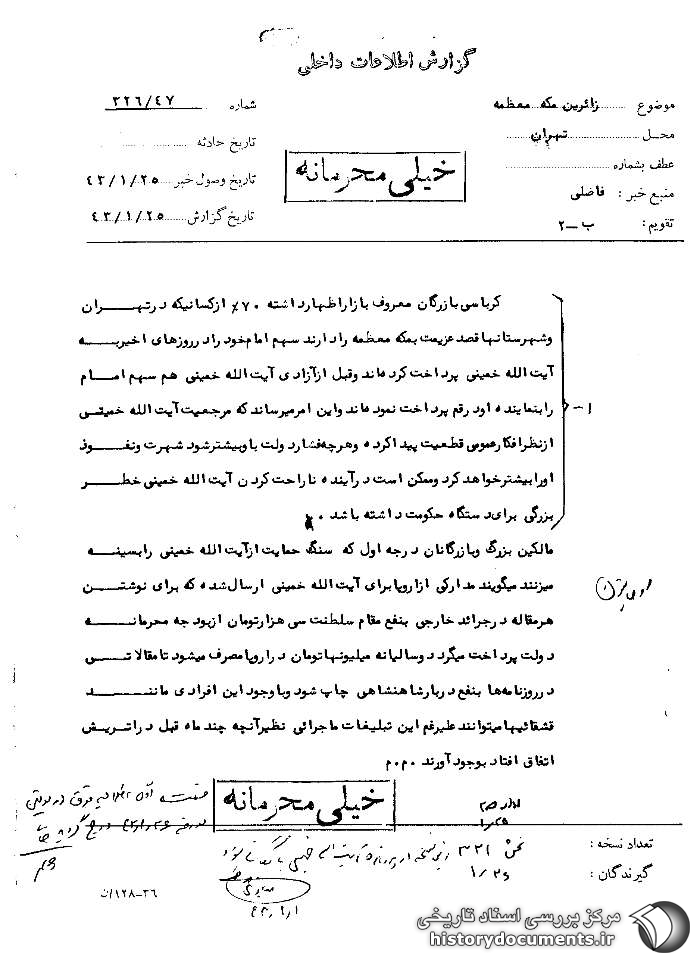 گزارش اطلاعات داخلی
موضوع زائرین مکه معظمه
محل تهران
عطف بشماره
منبع خبر : فاضلی
تقویم : ب ــ ۲
شماره ۳۲۶/۴۷
تاریخ حادثه
تاریخ وصول خبر ۴۳/۱/۲۵
تاریخ گزارش ۴۳/۱/۲۵
خیلی محرمانه
کرباسی بازرگان معروف بازار اظهار داشته ۷۰٪ از کسانیکه در تهران
وشهرستانها قصد عزیمت بمکه معظمه را دارند سهم امام خود را در روزهای اخیر به
آیت الله خمینی پرداخت کرده اند وقبل از آزادی آیت الله خمینی هم سهم امام
۱- را بنماینده او در قم پرداخت نموده اند واین امر میرساند که مرجعیت آیت الله خمینی
از نظر افکار عمومی قطعیت پیدا کرده وهر چه فشار دولت با و بیشتر شود شهرت ونفوذ
او را بیشتر خواهد کرد وممکن است در آینده ناراحت کردن آیت الله خمینی خطر
بزرگی برای دستگاه حکومت داشته باشد ۰
مالکین بزرگ وبازرگانان درجه اول که سنگ حمایت از آیت الله خمینی را بسینه
میزنند میگویند مدارکی از اروپا برای آیت الله خمینی ارسال شده که برای نوشتن
هر مقاله در جرائد خارجی بنفع مقام سلطنت سی هزار تومان از بودجه محرمانه
دولت پرداخت میگردد وسالیانه میلیونها تومان در اروپا مصرف میشود تا مقالاتی
در روزنامه ها بنفع دربار شاهنشاهی چاپ شود وبا وجود این افرادی مانند
قشقائیها میتوانند علیرغم این تبلیغات ماجرائی نظیر آنچه چند ماه قبل در اتریش
اتفاق افتاد بوجود آورند ۰م۰م
خیلی محرمانه
تعداد نسخه :
گیرندگان :
۳۶-۱۲۸/ات
مرکز بررسی اسناد تاریخی
historydocuments.ir